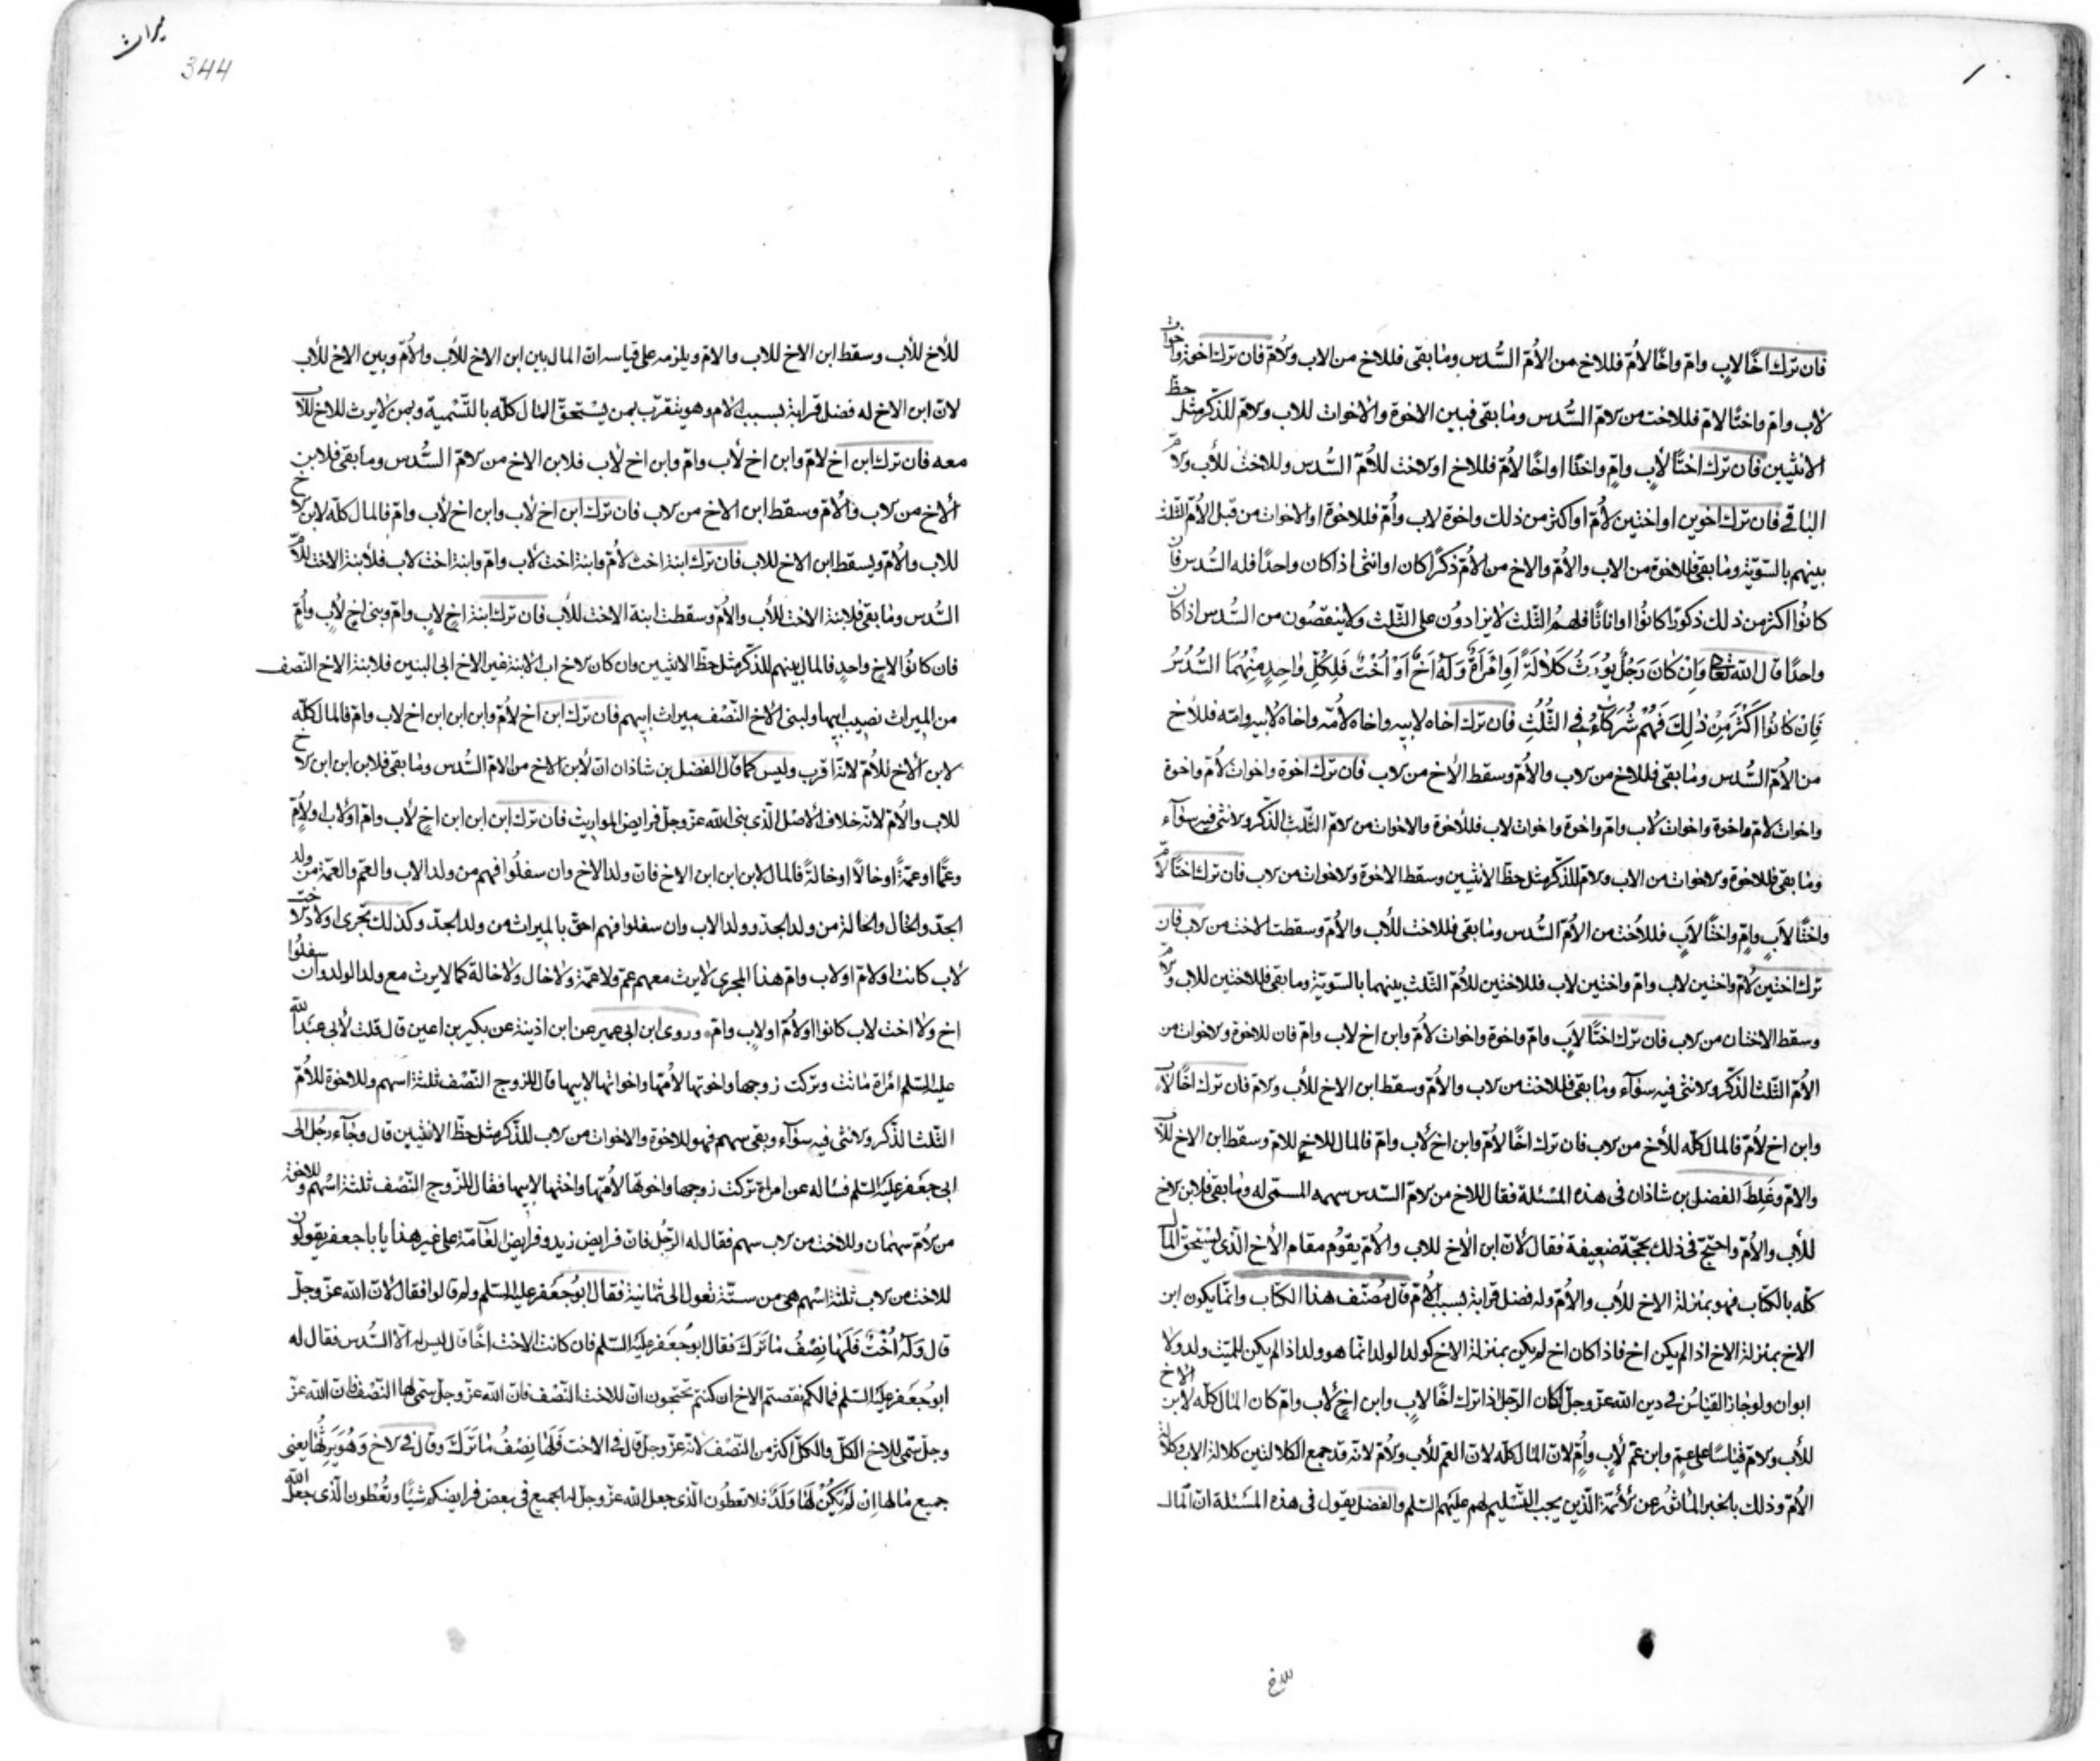 فان ترك اخًا لابٍ وامّ واخًا لأمّ فللاخ من الأمّ السُّدس وما بقى فللاخ من الاب والامّ فان ترك اخوة واخوات
لاب وامّ واختًا لامّ فللاخت من الامّ السُّدس وما بقى فبين الاخوة والاخوات للاب والامّ للذّكر مثل حظّ
الانثيين فان ترك اختًا لأبٍ وامٍّ واختًا او اخًا لأمّ فللاخ او الاخت للأمّ السُّدس وللاخت للأب والامّ
الباقى فان ترك اخوين او اختين لأمّ او اكثر من ذلك واخوة لاب وأمّ فللاخوة او الاخوات من قبل الأمّ الثّلث
بينهم بالسّويّة وما بقى فللاخوة من الاب والأمّ والاخ من الأمّ ذكرًا كان او انثى اذا كان واحدًا فله السُّدس فان
كانوُا اكثر من ذلك ذكورًا كانوُا او اناثًا فلهمُ الثّلث لا يزادوُن على الثّلث ولا ينقصُون من السُّدس اذا كان
واحدًا قال الله تعالى وَاِنْ كَانَ رَجُلٌ يُورَثُ كَلَالَةً اَوِ امْرَأَةٌ وَلَهُ اَخٌ اَوْ اُخْتٌ فَلِكُلِّ وَاحِدٍ مِنْهُمَا السُّدُسُ
فَاِنْ كَانُوا اَكْثَرَ مِنْ ذٰلِكَ فَهُمْ شُرَكَآءُ فِى الثُّلُثِ فان ترك اخاه لابيه واخاه لأمّه واخاه لأبيه وامّه فللأخ
من الأمّ السُّدس وما بقى فللاخ من الاب والأمّ وسقط الأخ من الاب فان ترك اخوة واخوات لأمّ واخوة
واخوات لأمّ واخوة واخوات لأب وامّ واخوة واخوات لاب فللأخوة والاخوات من الامّ الثّلث الذّكر والانثى فيه سوآء
وما بقى فللاخوة والاخوات من الاب والامّ للذّكر مثل حظّ الانثيين وسقط الاخوة والاخوات من الاب فان ترك اختًا لأمّ
واختًا لأبٍ وامٍّ واختًا لأبٍ فللأخت من الأمّ السُّدس وما بقى فللاخت للأب والأمّ وسقطت الاخت من الاب فان
ترك اختين لأمّ واختين لاب وامّ واختين لاب فللاختين للأمّ الثّلث بينهما بالسّويّة وما بقى فللاختين للاب والامّ
وسقط الاختان من الاب فان ترك اختًا لأبٍ وامّ واخوة واخوات لأمّ وابن اخ لاب وامّ فان للاخوة والاخوات من
الأمّ الثّلث الذّكر والانثى فيه سوآء وما بقى فللاخت من الاب والأمّ وسقط ابن الاخ للأب والامّ فان ترك اخًا لأب
وابن اخ لأمّ فالمال كلّه للأخ من الاب فان ترك اخًا لأمّ وابن اخ لأب وامّ فالمال للاخ للامّ وسقط ابن الاخ للأب
والامّ وغَلِطَ الفضل بن شاذان فى هذه المسئلة فقال للاخ من الامّ السّدس سهمه المسمّى له وما بقى فلابن الاخ
للأب والأمّ واحتجّ فى ذلك بحجّة ضعيفة فقال لأنّ ابن الأخ للاب والأمّ يقوُم مقام الأخ الّذى يستحقّ المال
كلّه بالكتاب فهو بمنزلة الاخ للأب والأمّ وله فضل قرابة بسبب الأمّ قال مُصنّف هذا الكتاب وانّما يكون ابن
الاخ بمنزلة الاخ اذا لم يكن اخ فاذا كان اخ لم يكن بمنزلة الاخ كولد الولد انّما هو ولد اذا لم يكن للميّت ولد ولا
ابوان ولو جاز القياسُ فى دين الله عزّ وجلّ لكان الرّجل اذا ترك اخًا لابٍ وابن اخٍ لأب وامّ كان المال كلّه لابن الاخ
للأب والامّ قياسًا على عمّ وابن عمّ لأبٍ وأمٍّ لانّ المال كلّه لانّ العمّ للأب والامّ لانّه قد جمع الكلالتين كلالة الاب وكلالة
الأمّ وذلك بالخبر المأثوُر عن الأئمّة الّذين يجب التّسليم لهم عليهم السّلم والفضل يقول فى هذه المسئلة انّ المال
للاخ
ميراث
344
للأخ للأب وسقط ابن الاخ للاب والامّ ويلزمه على قياسه انّ المال بين ابن الاخ للأب والأمّ وبين الاخ للأب
لانّ ابن الاخ له فضل قرابة بسبب الامّ وهو يتقرّب بمن يستحقّ المال كلّه بالتّسمية وبمن لا يرث للاخ للأب
معه فان ترك ابن اخ لامّ وابن اخ لأب وامّ وابن اخ لأب فلابن الاخ من الامّ السُّدس وما بقى فلابن
الأخ من الاب والأمّ وسقط ابن الاخ من الاب فان ترك ابن اخ لأب وابن اخ لأب وامّ فالمال كلّه لابن الاخ
للاب والأمّ ويسقط ابن الاخ للاب فان ترك ابنة اخت لأمّ وابنة اخت لأب وامّ وابنة اخت لاب فلأبنة الاخت للأمّ
السُّدس وما بقى فلابنة الاخت للأب والأمّ وسقطت ابنة الاخت للأب فان ترك ابنة اخٍ لابٍ وامّ وبنى اخٍ لأبٍ وأمٍّ
فان كانوُا لاخٍ واحدٍ فالمال بينهم للذّكر مثل حظّ الانثيين وان كان الاخ ابى الابنة غير الاخ ابى البنين فلابنة الاخ النّصف
من الميراث نصيب ابيها ولبنى الاخ النّصف ميراث ابيهم فان ترك ابن اخ لأمّ وابن ابن ابن اخ لاب وامّ فالمال كلّه
لابن الأخ للأمّ لانّه اقرب وليس كما قال الفضل بن شاذان انّ لأبن الاخ من الامّ السُّدس وما بقى فلابن ابن ابن الاخ
للاب والأمّ لانّه خلاف الأصل الّذى بنى الله عزّ وجلّ فرايض المواريث فان ترك ابن ابن ابن اخٍ لأب وامّ او لاب او لأمّ
وعمًّا او عمّةً او خالًا او خالةً فالمال لابن ابن ابن الاخ فانّ ولد الاخ وان سفلُوا فهم من ولد الاب والعمّ والعمّة من ولد
الجدّ والخال والخالة من ولد الجدّ وولد الاب وان سفلوا فهم احقّ بالميراث من ولد الجدّ وكذلك تجرى اولاد الاخت
لأب كانت او لامّ او لاب وامّ هذا المجرى لا يرث معهم عمّ ولا عمّة ولا خال ولا خالة كما لا يرث مع ولد الولد وان سفلُوا
اخ ولا اخت لاب كانوا او لأمّ او لاب وامّ وروى ابن ابى عمير عن ابن اذينة عن بكير بن اعين قال قلت لأبى عبد الله
عليه السّلم امرأة ماتت وتركت زوجها واخوتها لأمّها واخواتها لابيها قال للزوج النّصف ثلثة اسهم وللاخوة للأمّ
الثّلث الذّكر والانثى فيه سوآء وبقى سهم فهو للاخوة والاخوات من الاب للذّكر مثل حظّ الانثيين قال وجآء رجُل الى
ابى جعفر عليه السّلم فسأله عن امراة تركت زوجها واخوتها لأمّها واختها لابيها فقال للزّوج النّصف ثلثة اسهم وللاخوة
من الأمّ سهمان وللاخت من الاب سهم فقال له الرّجُل فانّ فرايض زيد وفرايض العآمّة على غير هذا يا با جعفر يقولون
للاخت من الاب ثلثة اسهم هى من ستّة تعول الى ثمانية فقال ابوُ جعفر عليه السّلم ولم قالوا فقال لأنّ الله عزّ وجلّ
قال وَلَهُ اُخْتٌ فَلَهَا نِصْفُ مَا تَرَكَ فقال ابوُ جعفر عليه السّلم فان كانت الاخت اخًا قال ليس له الّا السُّدس فقال له
ابوُ جعفر عليه السّلم فما لكم نقصتم الاخ ان كنتم تحتجّون انّ للاخت النّصف فانّ الله عزّ وجلّ سمّى لها النّصف فانّ الله عزّ
وجلّ سمّى للاخ الكلّ والكلّ اكثر من النّصف لانّه عزّ وجلّ قال فى الاخت فَلَهَا نِصْفُ مَا تَرَكَ وقال فى الاخ وَهُوَ يَرِثُهَا يعنى
جميع مالها اِنْ لَمْ يَكُنْ لَهَا وَلَدٌ فلا تعطُون الّذى جعل الله عزّ وجلّ له الجميع فى بعض فرايضكم شيئًا وتُعْطون الّذى جعل الله